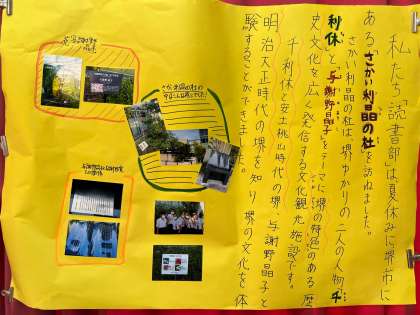 私たち読書部は夏休みに堺市に
ある「さかい利晶の杜」を訪ねました。
さかい利晶の杜は堺ゆかりの二人の人物「千
利休」と「与謝野晶子」をテーマに堺の特色のある歴
史文化を広く発信する文化観光施設です。
千利休と安土桃山時代の堺、与謝野晶子と
明治大正時代の堺を知り堺の文化を体
験することができました。